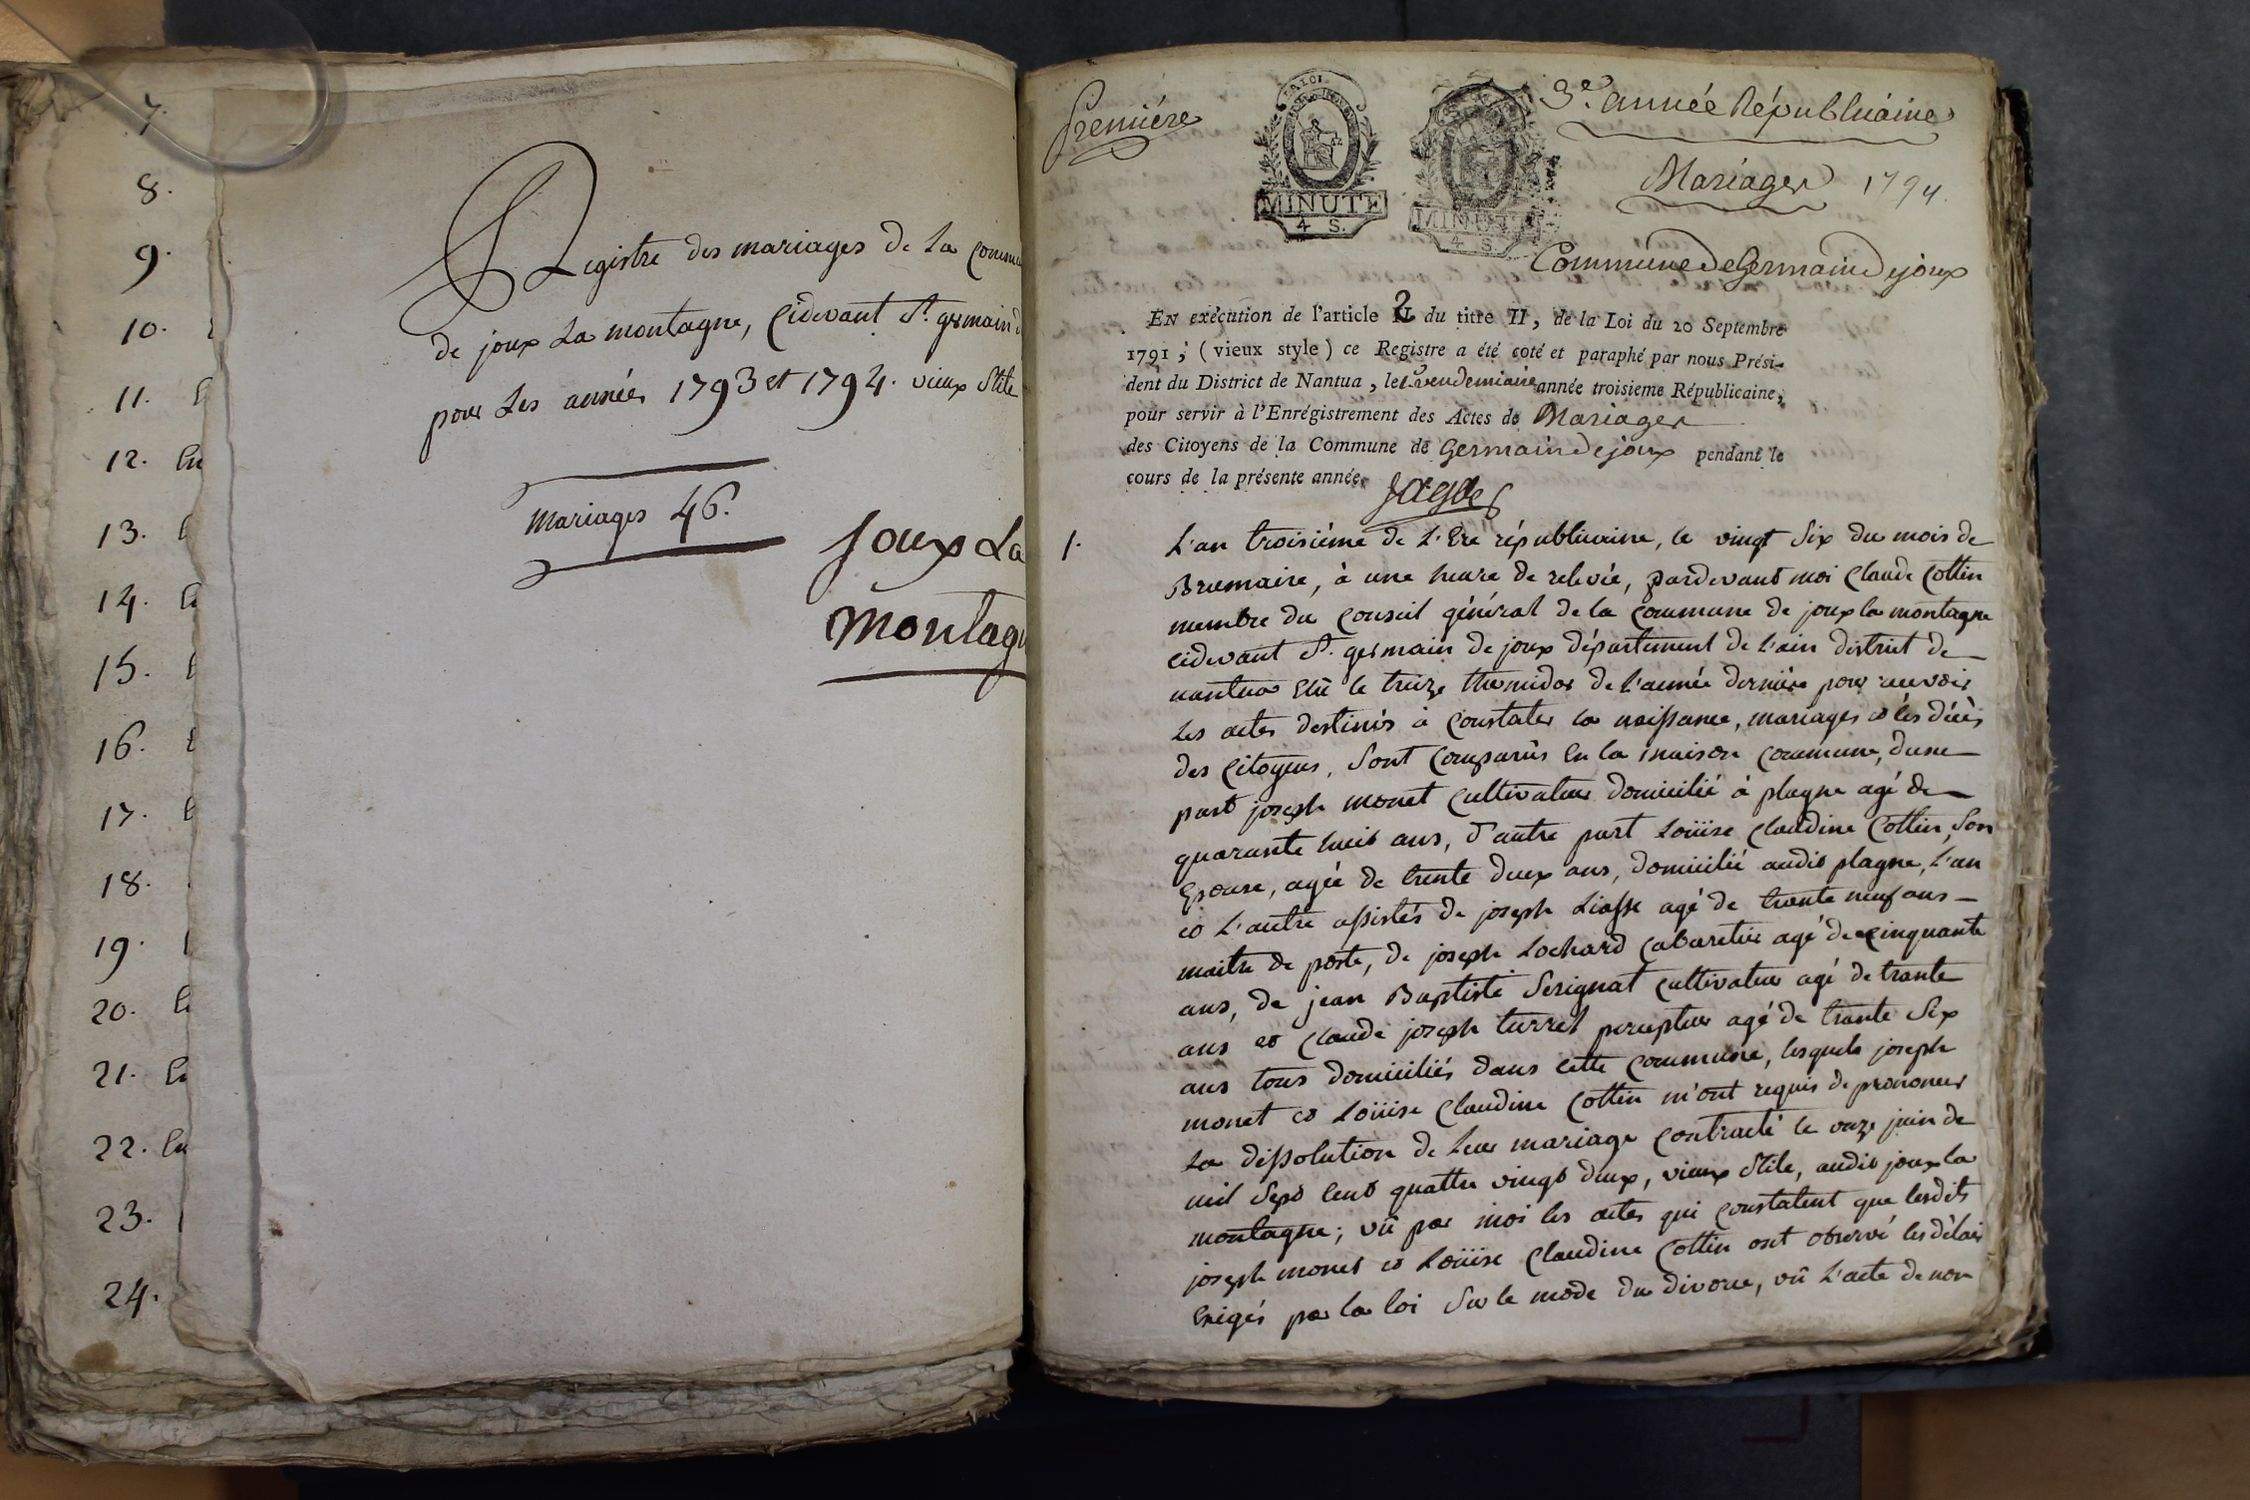 7.
8.
9.
10.
11.
12. En
13.
14.
15.
16.
17.
18.
19.
20.
21.
22. En
23.
24.
Registre des mariages de la Commu
de joux La montagne, Cidevant St. germain d
pour Les années 1793 et 1794. vieux Stile
Mariages 46.
Joux La
Montagn
Premiére
LA LOI
MINUTE
4 S.
MINUTE
4 S.
3e. année Républicaine
Mariages 1794.
Commune de Germain de joux
EN exécution de l'article 2 du titre II, de la Loi du 20 Septembre
1791, (vieux style) ce Registre a été coté et paraphé par nous Prési-
dent du District de Nantua, le vendemiaire année troisieme Républicaine,
pour servir à l'Enrégistrement des Actes de Mariages
des Citoyens de la Commune de Germain de joux pendant le
cours de la présente année.
1.
L'an troisiéme de L'Ere républicaine, le vingt Six du mois de
Brumaire, à une heure de relevée, pardevant moi Claude Cottin
membre du Conseil général de la Commune de joux la montagne
cidevant St. germain de joux département de L'ain district de
nantua Elû le treize thermidor de L'année dernière pour recevoir
Les actes destinés à Constater la naissance, mariages et les décès
des Citoyens, Sont Comparus En la maison Commune, dune
part joseph monet Cultivateur domicilié à plagne agé de
quarante huit ans, d'autre part Loüise Claudine Cottin, Son
Epouse, agée de trente deux ans, domicilié audit plagne, L'un
et L'autre assistés de joseph Liasse agé de trente neuf ans
maitre de poste, de joseph Lochard Cabaretier agé de cinquante
ans, de jean Baptiste Serignat Cultivateur agé de trante
ans et Claude joseph turrel percepteur agé de trante Six
ans tous domiciliés dans Cette Commune, lesquels joseph
monet et Loüise Claudine Cottin m'ont requis de prononcer
La dissolution de Leur mariage Contracté le onze juin de
mil Sept Cent quattre vingt deux, vieux Stile, audit joux la
montagne; vû par moi les actes qui Constatent que lesdits
joseph monet et Loüise Claudine Cottin ont observé les délais
Exigés par la loi Sur le mode du divorce, vû L'acte de non